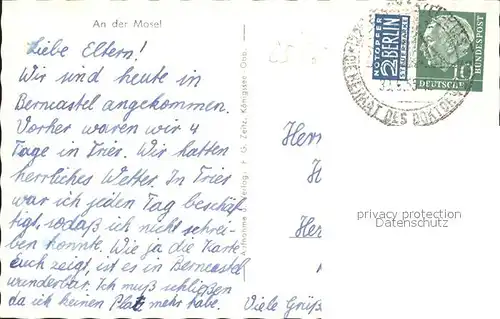 An der Mosel
Liebe Eltern!
Wir sind heute in
Berncastel angekommen.
Vorher waren wir 4
Tage in Trier. Wir hatten
herrliches Wetter. In Trier
war ich jeden Tag beschäf-
tigt, sodaß ich nicht schrei-
ben konnte. Wie ja die Karte
Euch zeigt, ist es in Berncastel
wunderbar. Ich muß schließen
da ich keinen Platz mehr habe.
Viele Grüß
Aufnahme u. Verlag: F. G. Zeitz, Königssee Obb.
NOTOPFER
2 BERLIN
STEUERMARKE
10
DEUTSCHE
BUNDESPOST
HEIMAT DES DOKTOR
Herr
H
Her
privacy protection
watermark